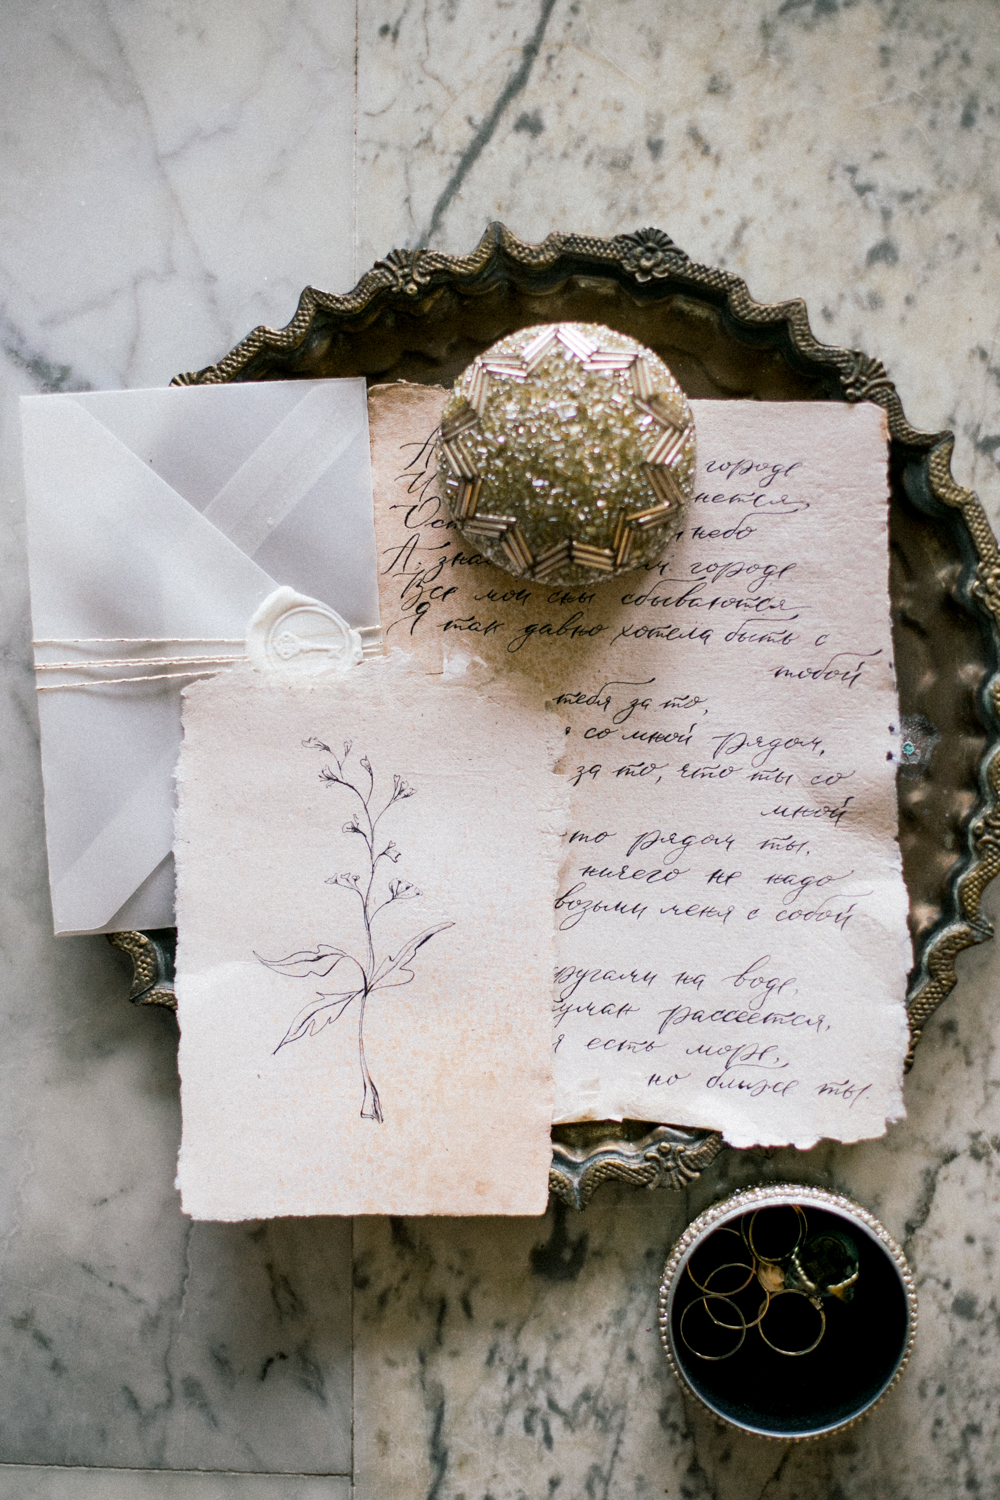 А городе
И
Ост небо
А зна м городе
Все мои сны сбываются
Я так давно хотела быть с
тобой
тебя за то,
со мной рядом,
за то, что ты со
мной
то рядом ты,
ничего не надо
возьми меня с собой
кругами на воде,
туман рассеется,
я есть море,
но ближе ты.